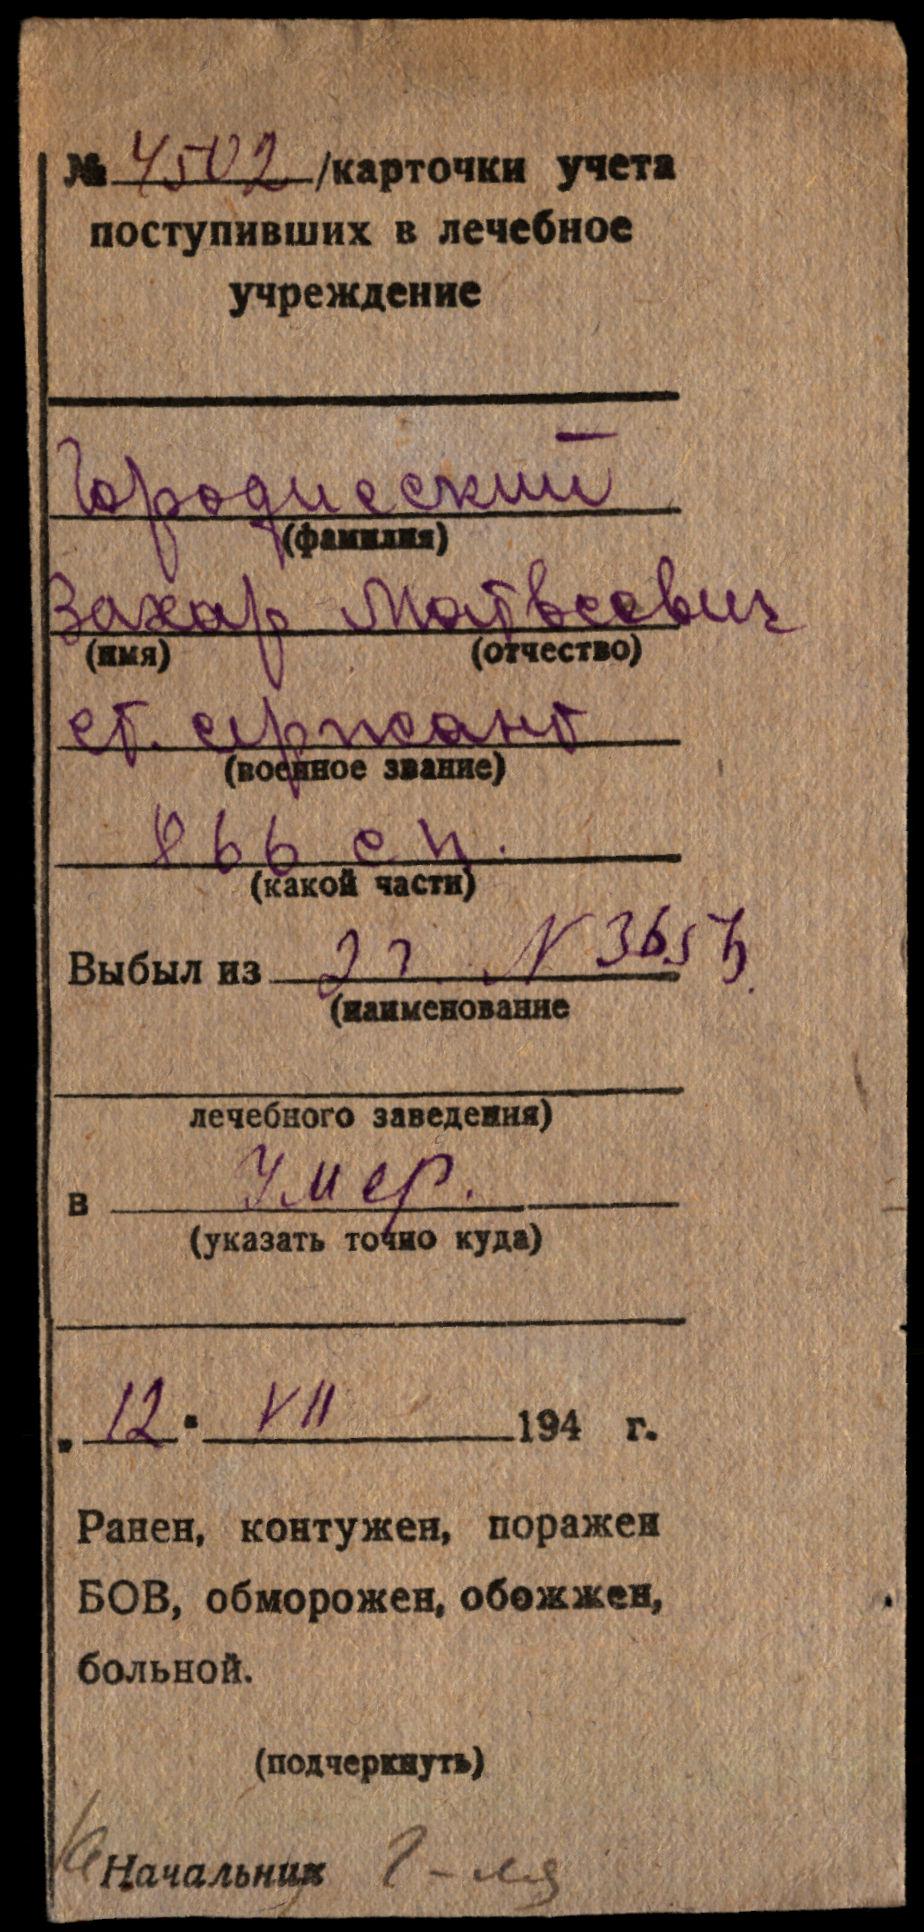 № 4502 /карточки учета
поступивших в лечебное
учреждение
Городисский
(фамилия)
Захар Матвеевич
(имя) (отчество)
ст. сержант
(военное звание)
866 сп.
(какой части)
Выбыл из эг N 3657
(наименование
лечебного заведения)
в Умер.
(указать точно куда)
„ 12 " VII 194 г.
Ранен, контужен, поражен
БОВ, обморожен, обожжен,
больной.
(подчеркнуть)
Начальник